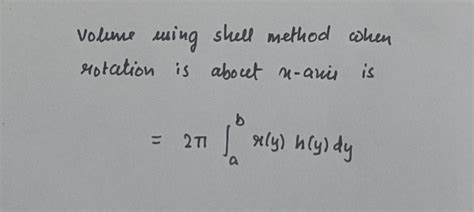 Volume using shell method when
rotation is about x-axis is
= 2π ∫_a^b r(y) h(y) dy